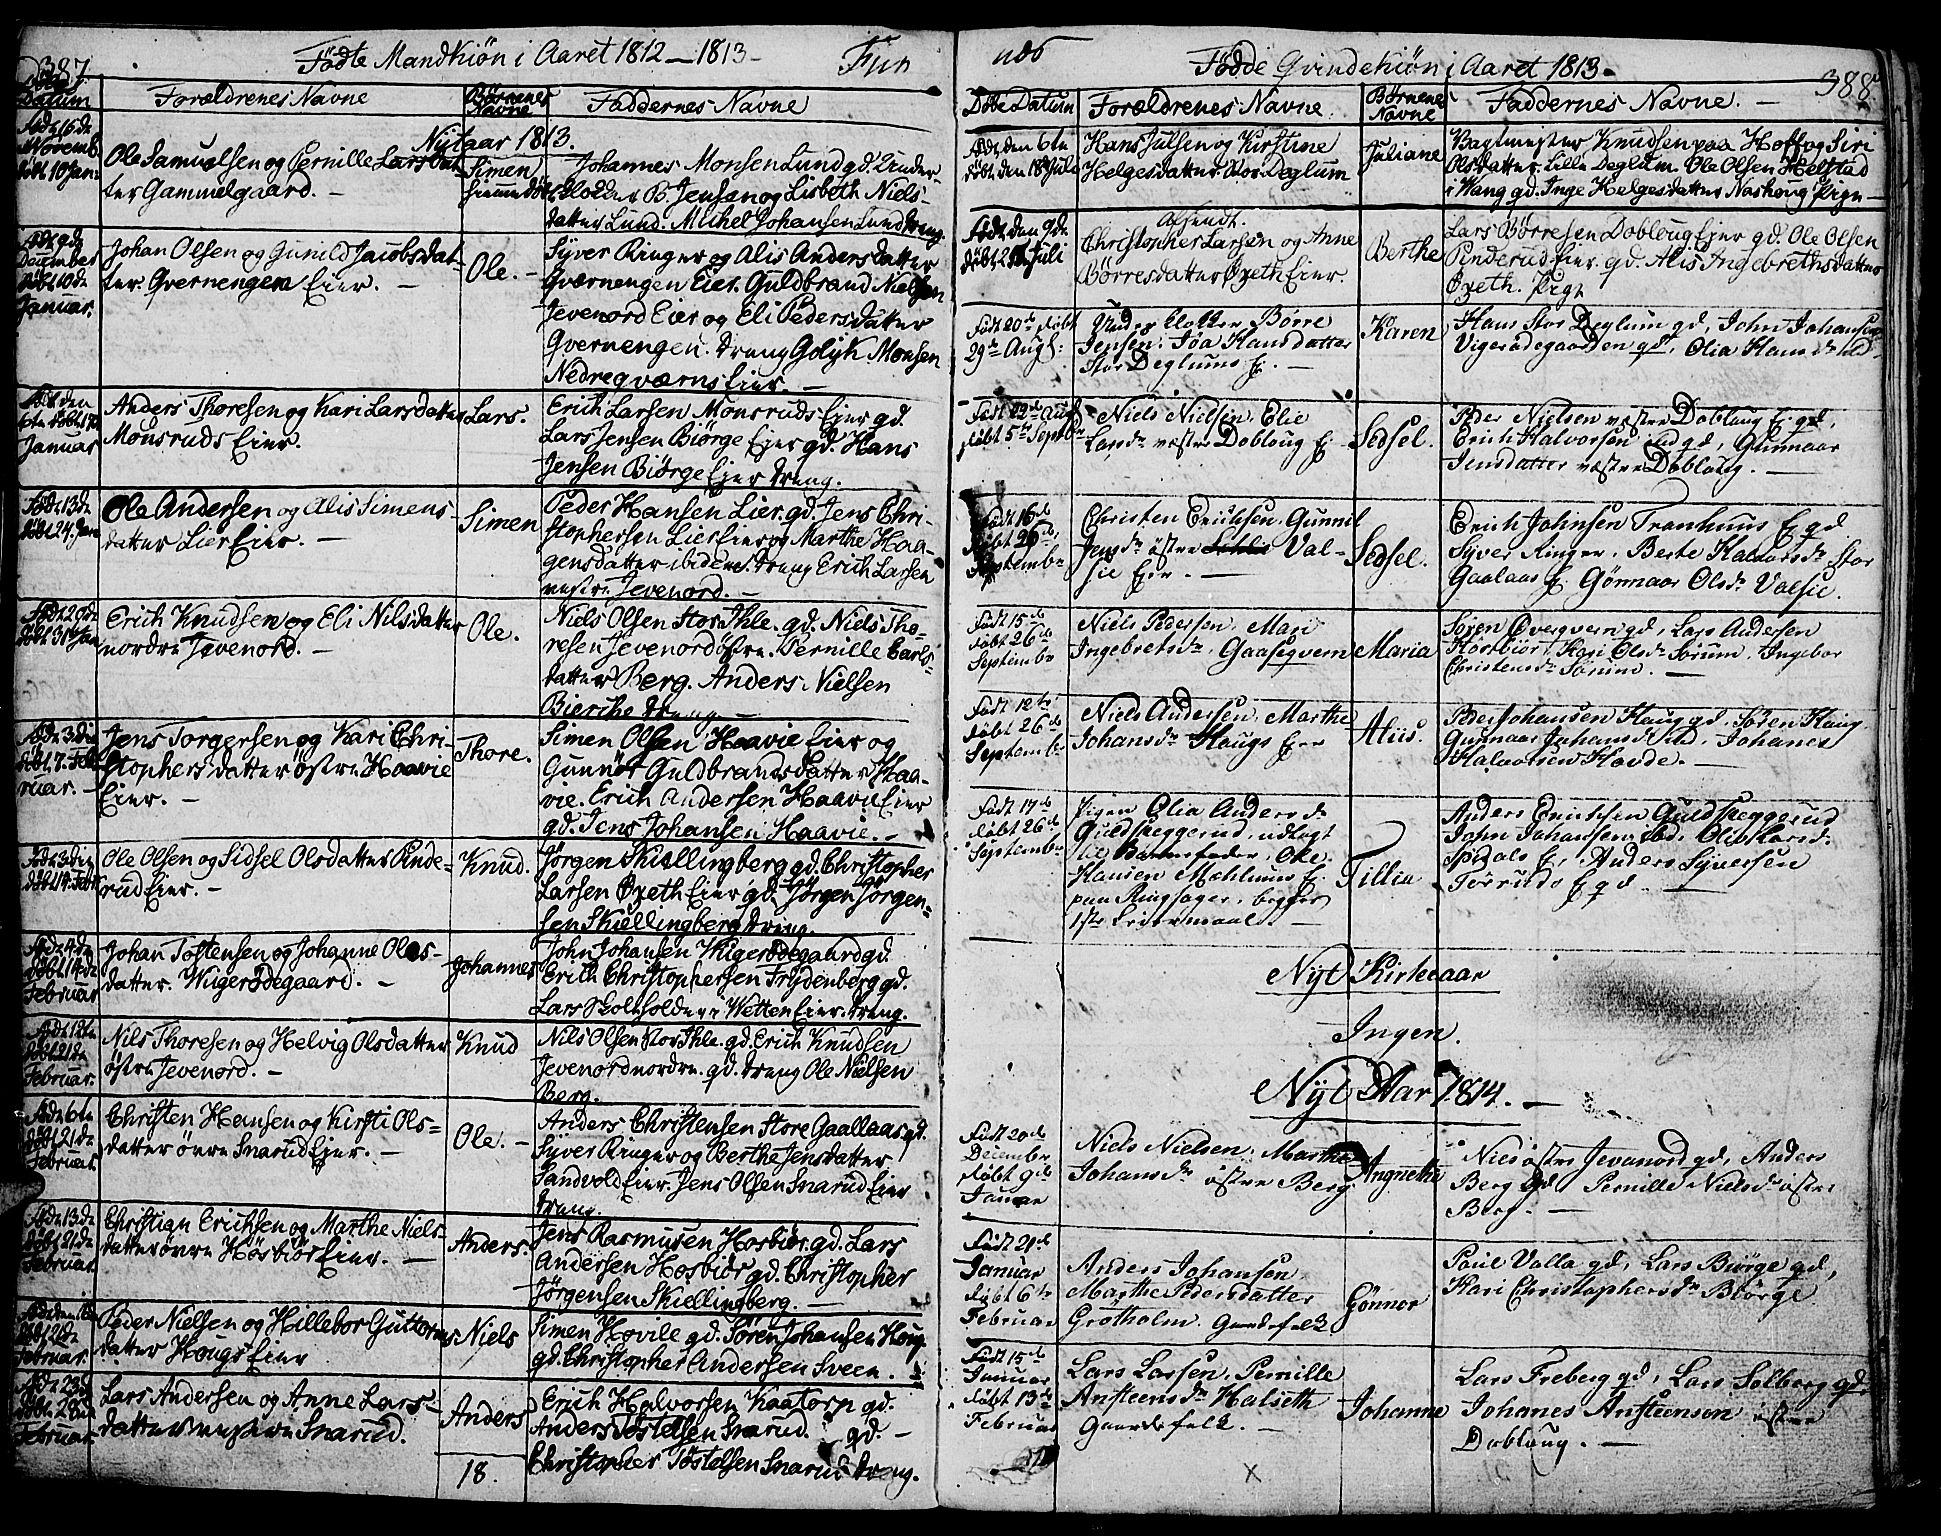 387.
Födte Mandkiön i Aaret 1812 — 1813 -
Datum
Forældrenes Navne
Börnenes Navne
Faddernes Navne
Nÿtaar 1813.
Ole Samuelsen og Pernille Larsdat-
ter Gammelgaard. -
Simen
Johannes Monsen Lund gd. Under-
klokker B. Jensen og Lisbeth Niels-
datter Lund. Mikel Johansen Lund dreng
Januar.
Johan Olsen og Gunild Jacobsdat-
ter Qvernengen Eier. -
Ole. -
Syver Ringer og Alis Andersdatter
Qværnengen Eier. Guldbrand Nielsen
Jevenord Eier og Eli Pedersdatter
Qvernengen. dreng Golik Monsen
Nedreqværns Eier. -
Januar
Anders Thoresen og Kari Larsdatter
Monsruds Eier.
Lars.
Erich Larsen Monsruds Eier gd.
Lars Jensen Biörge Eier gd. Hans
Jensen Biörge Eier dreng.
Födt 13de
döbt 24. Jan
Ole Andersen og Alis Simens-
datter Lier Eier. -
Simen
Peder Hansen Lier. gd. Jens Chri-
stophersen Lier Eier og Marthe Haa-
gensdatter ibidem. dreng Erich Larsen
Jevenord. -
döbt 31te Jan
Erich Knudsen og Eli Nilsdatter
nordre Jevenord. -
Ole.
Niels Olsen Stor Ihle. gd. Niels Tho-
resen Jevenord östre. Pernille Carls-
datter Berg. Anders Nielsen
dreng -
Födt 3die
döbt 7. Feb
ruar. -
Jens Torgersen og Kari Chri-
stophersdatter östre Haavie
Eier. -
Thore.
Simen Olsen Haavie Eier og
Gunnor Guldbrandsdatter Haa-
vie. Erich Andersen Haavie Eier
gd. Jens Johansen Haavie. -
Födt 3die
döbt 14. Febr
Ole Olsen og Sidsel Olsdatter Pinde-
rud Eier. -
Knud.
Jörgen Skiellingberg gd. Christopher
Larsen Öxeth Eier gd. Jörgen Jörgen-
sen Skiellingberg dreng.
Födt 4de
döbt 14de
Februar
Johan Tostensen og Johanne Ols-
datter. Wigerödegaard. -
Johannes
John Johansen Wigerödegaard gd.
Erich Christophersen Frydenberg gd.
Lars i Wetten Eier. dreng.
Födt 12te
döbt 21de
Februar.
Nils Thoresen og Helvig Olsdatter
östre Jevenord. -
Knud
Nils Olsen Stor Ihle. gd. Erich Knudsen
Jevenord nordre. gd. dreng Ole Nielsen
Berg.
Födt 6te
döbt 21de
Februar.
Christen Hansen og Kirsti Ols-
datter övre Snarud Eier. -
Ole. -
Anders Christensen Store Gaallaas gd.
Syver Ringer og Berthe Jensdatter
Sandvold Eier. Jens Olsen Snarud Eier
dreng.
Födt 13de
döbt 21de
Februar.
Christian Erichsen og Marthe Niels-
datter övre Hösbiör Eier. -
Anders.
Jens Rasmusen Hosbiör. gd. Lars
Andersen Hosbiör gd. Christopher
Jörgensen Skiellingberg. -
Februar.
Peder Nielsen og Hillebor Guttorms-
datter Hougs Eier
Niels
Simen Hovile gd. Sören Johansen Houg
gd. Christopher Andersen Sveen. -
Födt 23de
döbt 28de
Februar.
Lars Andersen og Anne Lars-
datter Snarud.
Anders
Erich Halvorsen Kaatorp gd.
Anders Tostelsen Snarud. gd. -
Christopher Töstelsen Snarud dreng.
18.
388
Födde Qvindekiön i Aaret 1813 -
Dato Datum
Forældrenes Navne.
Börnenes Navne
Faddernes Navne. -
Födt den 6te
döbt den 18 Juli
Hans Julsen og Kirstine
Helgesdatter Stor Deglum
Juliane
Knudsen paa Hoff og Siri
Olsdatter Lille Deglum. Ole Olsen Helstad
i Wang gd. Inge Helgesdatter Pige -
Födt den 9de
döbt 25 Juli
Christopher Larsen og Anne
Börresdatter Öxeth Eier.
Berthe
Lars Börresen Dobloug Eier gd. Ole Olsen
Pinderud Eier. gd. Alis Ingebrethsdatter
Öxeth. Pige
Födt 20de döbt
29de Aug:
Under Klokker Börre
Jensen. Hansdatter
Stor Deglums E. -
Karen
Hans Stor Deglum gd, John Johansen
Vigerödegaarden gd, Olia Hans
Födt 22de Aug
döbt 5te Septbr
Niels Nielsen, Elie
Larsdr væstre Dobloug E
Sedsel.
Peder Nielsen væstre Dobloug E. gd,
Erich Halvorsen gd, Gunnaar
Jensdatter væstre Dobloug. -
Födt 16de
Döbt 26de
Septembr
Christen Erichsen, Gunnil
Jensdr östre Val-
sie Eier. -
Sedsel.
Erich Johnsen Tranhuus E gd
Syver Ringer, Berte Halvorsdr Stor
Gaalaas E, Gönnaar Olsdr Valsie.
Födt 15de
döbt 26de
Septembr
Niels Pedersen, Mari
Ingebretsdr, Gaaseqvern
Maria
Sören Overqvern gd, Lars Andersen
Kari Olsdr Sörum, Ingebor
Christensdr Sörum. -
Födt 12te
döbt 26de
Septembr
Niels Andersen, Marthe
Johansdr Haugs Eier
Aliis.
Peder Johansen Haug gd, Sören Haug
Gunnaar Johansdr ibid, Johanes
Halvorsen Hovde. -
Födt 17de
döbt 26de
Septembr
Pigen Olia Andersdr
Guldskeggerud, udlagt
til Barnefader, Ole
Hansen Mæhlums E.
paa Ringsager, begges
1ste Leiermaal. -
Tillia
Anders Erichsen Guldskeggerud
John Johansen ibid, Olia Larsdr
Spidals E, Anders Syversen
Törruds E gd. -
Nyt Kirkeaar
Ingen.
Nyt Aar 1814. -
Födt 20de
Decembr
döbt 9de
Januar
Niels Nielsen, Marthe
Johansdr östre Berg
Angnethe
Niels östre Jevanord gd, Anders
Berg gd Pernille Nielsdr östre
Berg. -
Födt 21de
Januar
döbt 6te
Februar
Anders Johansen
Marthe Pedersdatter
Grötholm. Gaardefolk
Gönnor
Paul Valla gd, Lars Biörge gd,
Kari Christophersdr Biörge
Födt 15de
Januar
döbt 13de
Februar
Lars Larsen, Pernille
Anstensdr Halseth
Gaardefolk. -
Johanne
Lars Freberg gd, Lars Solberg gd,
Johanes Anstensen östre
Dobloug. -